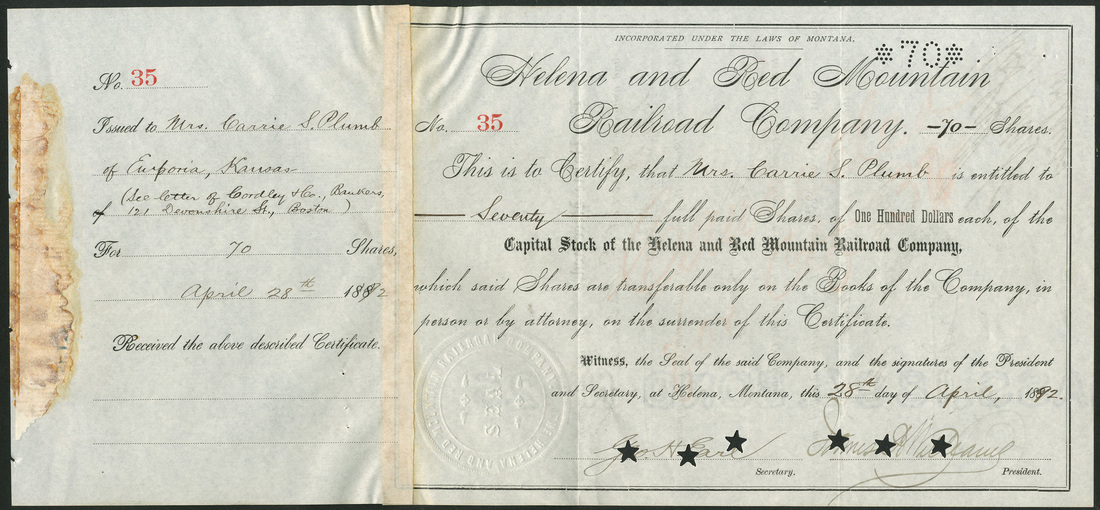 No. 35
Issued to Mrs. Carrie S. Plumb
of Emporia, Kansas
(See letter of Cordley & Co., Bankers,
of 121 Devonshire St., Boston)
For 70 Shares,
April 28th 1892
Received the above described Certificate.
INCORPORATED UNDER THE LAWS OF MONTANA.
*70*
Helena and Red Mountain
No. 35 Railroad Company. -70- Shares.
This is to Certify, that Mrs. Carrie S. Plumb is entitled to
Seventy full paid Shares, of One Hundred Dollars each, of the
Capital Stock of the Helena and Red Mountain Railroad Company,
which said Shares are transferable only on the Books of the Company, in
person or by attorney, on the surrender of this Certificate.
Witness, the Seal of the said Company, and the signatures of the President
and Secretary, at Helena, Montana, this 28th day of April, 1892.
Geo. H. Earl
Secretary.
President.
HELENA AND RED MOUNTAIN RAILROAD COMPANY
SEAL